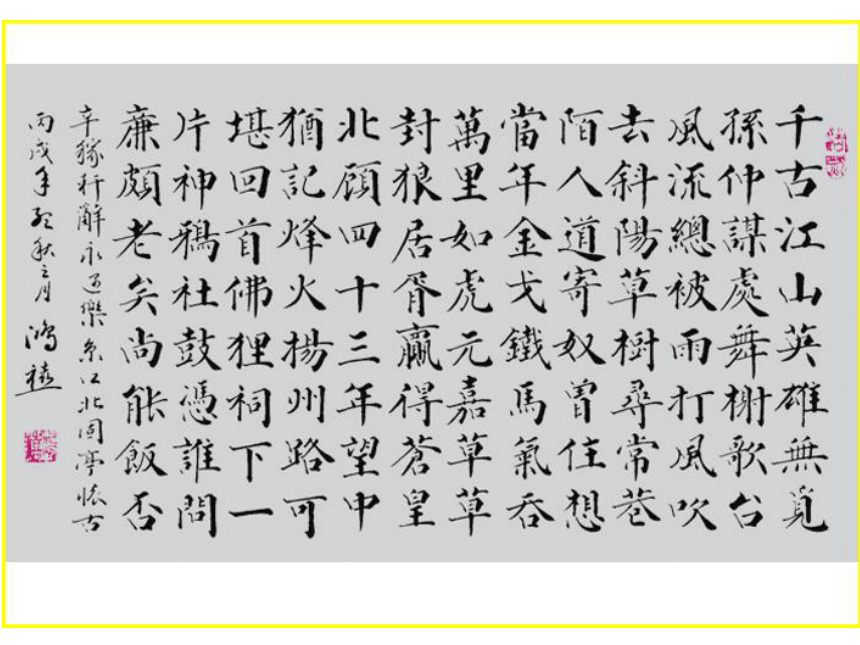 千古江山英雄無覓
孫仲謀處舞榭歌台
風流總被雨打風吹
去斜陽草樹尋常巷
陌人道寄奴曾住想
當年金戈鐵馬氣吞
萬里如虎元嘉草草
封狼居胥贏得蒼皇
北顧四十三年望中
猶記烽火揚州路可
堪回首佛狸祠下一
片神鴉社鼓憑誰問
廉頗老矣尚能飯否
辛稼軒辭永遇樂京江北固亭懷古
丙戌年孟秋之月鴻